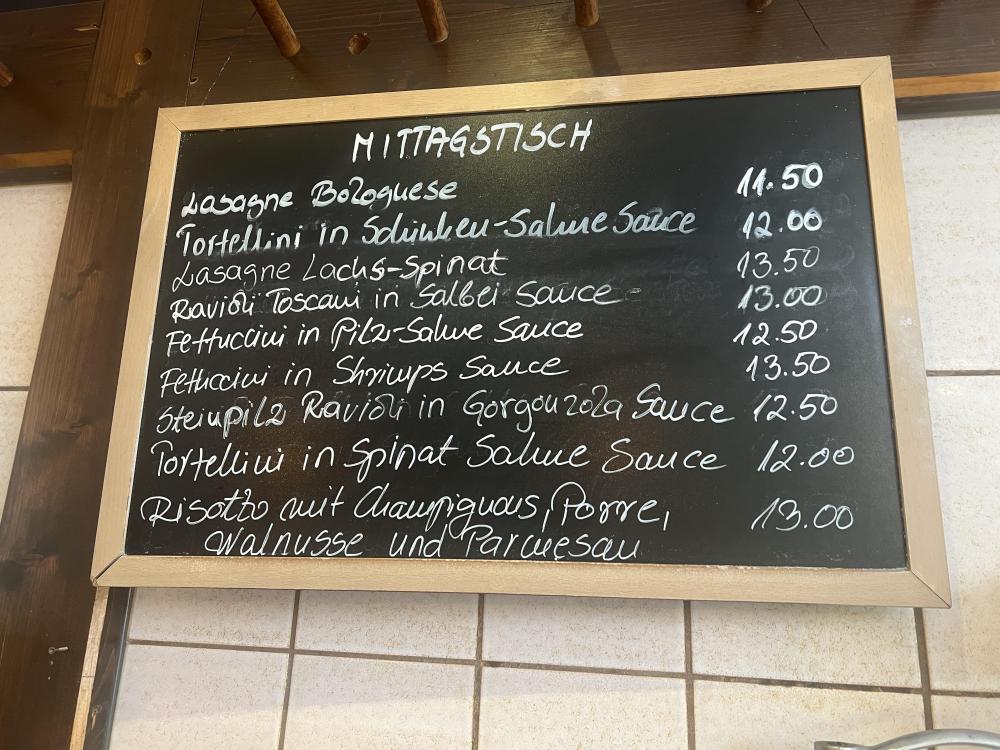 MITTAGSTISCH
Lasagne Bolognese 11.50
Tortellini in Schinken-Sahne Sauce 12.00
Lasagne Lachs-Spinat 13.50
Ravioli Toscani in Salbei Sauce 13.00
Fettuccini in Pilz-Sahne Sauce 12.50
Fettuccini in Shrimps Sauce 13.50
Steinpilz Ravioli in Gorgonzola Sauce 12.50
Tortellini in Spinat Sahne Sauce 12.00
Risotto mit Champignons, Porre, 13.00
Walnusse und Parmesan